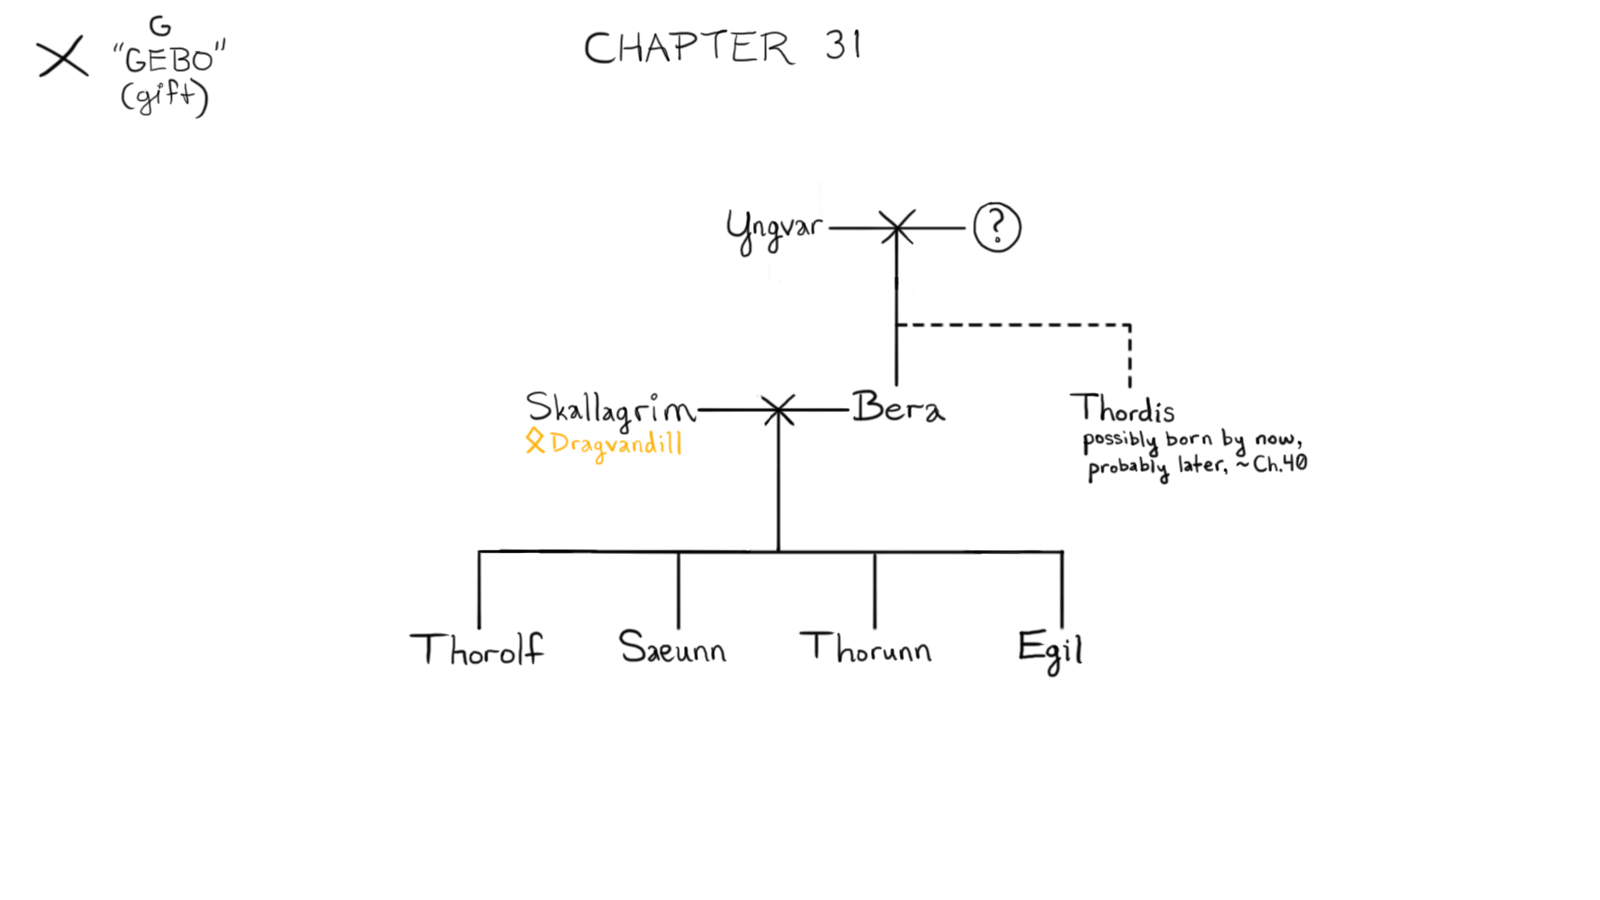 G
"GEBO"
(gift)
CHAPTER 31
Yngvar
?
Skallagrim
Bera
Thordis
ᛟ Dragvandill
possibly born by now,
probably later, ~Ch.40
Thorolf
Saeunn
Thorunn
Egil